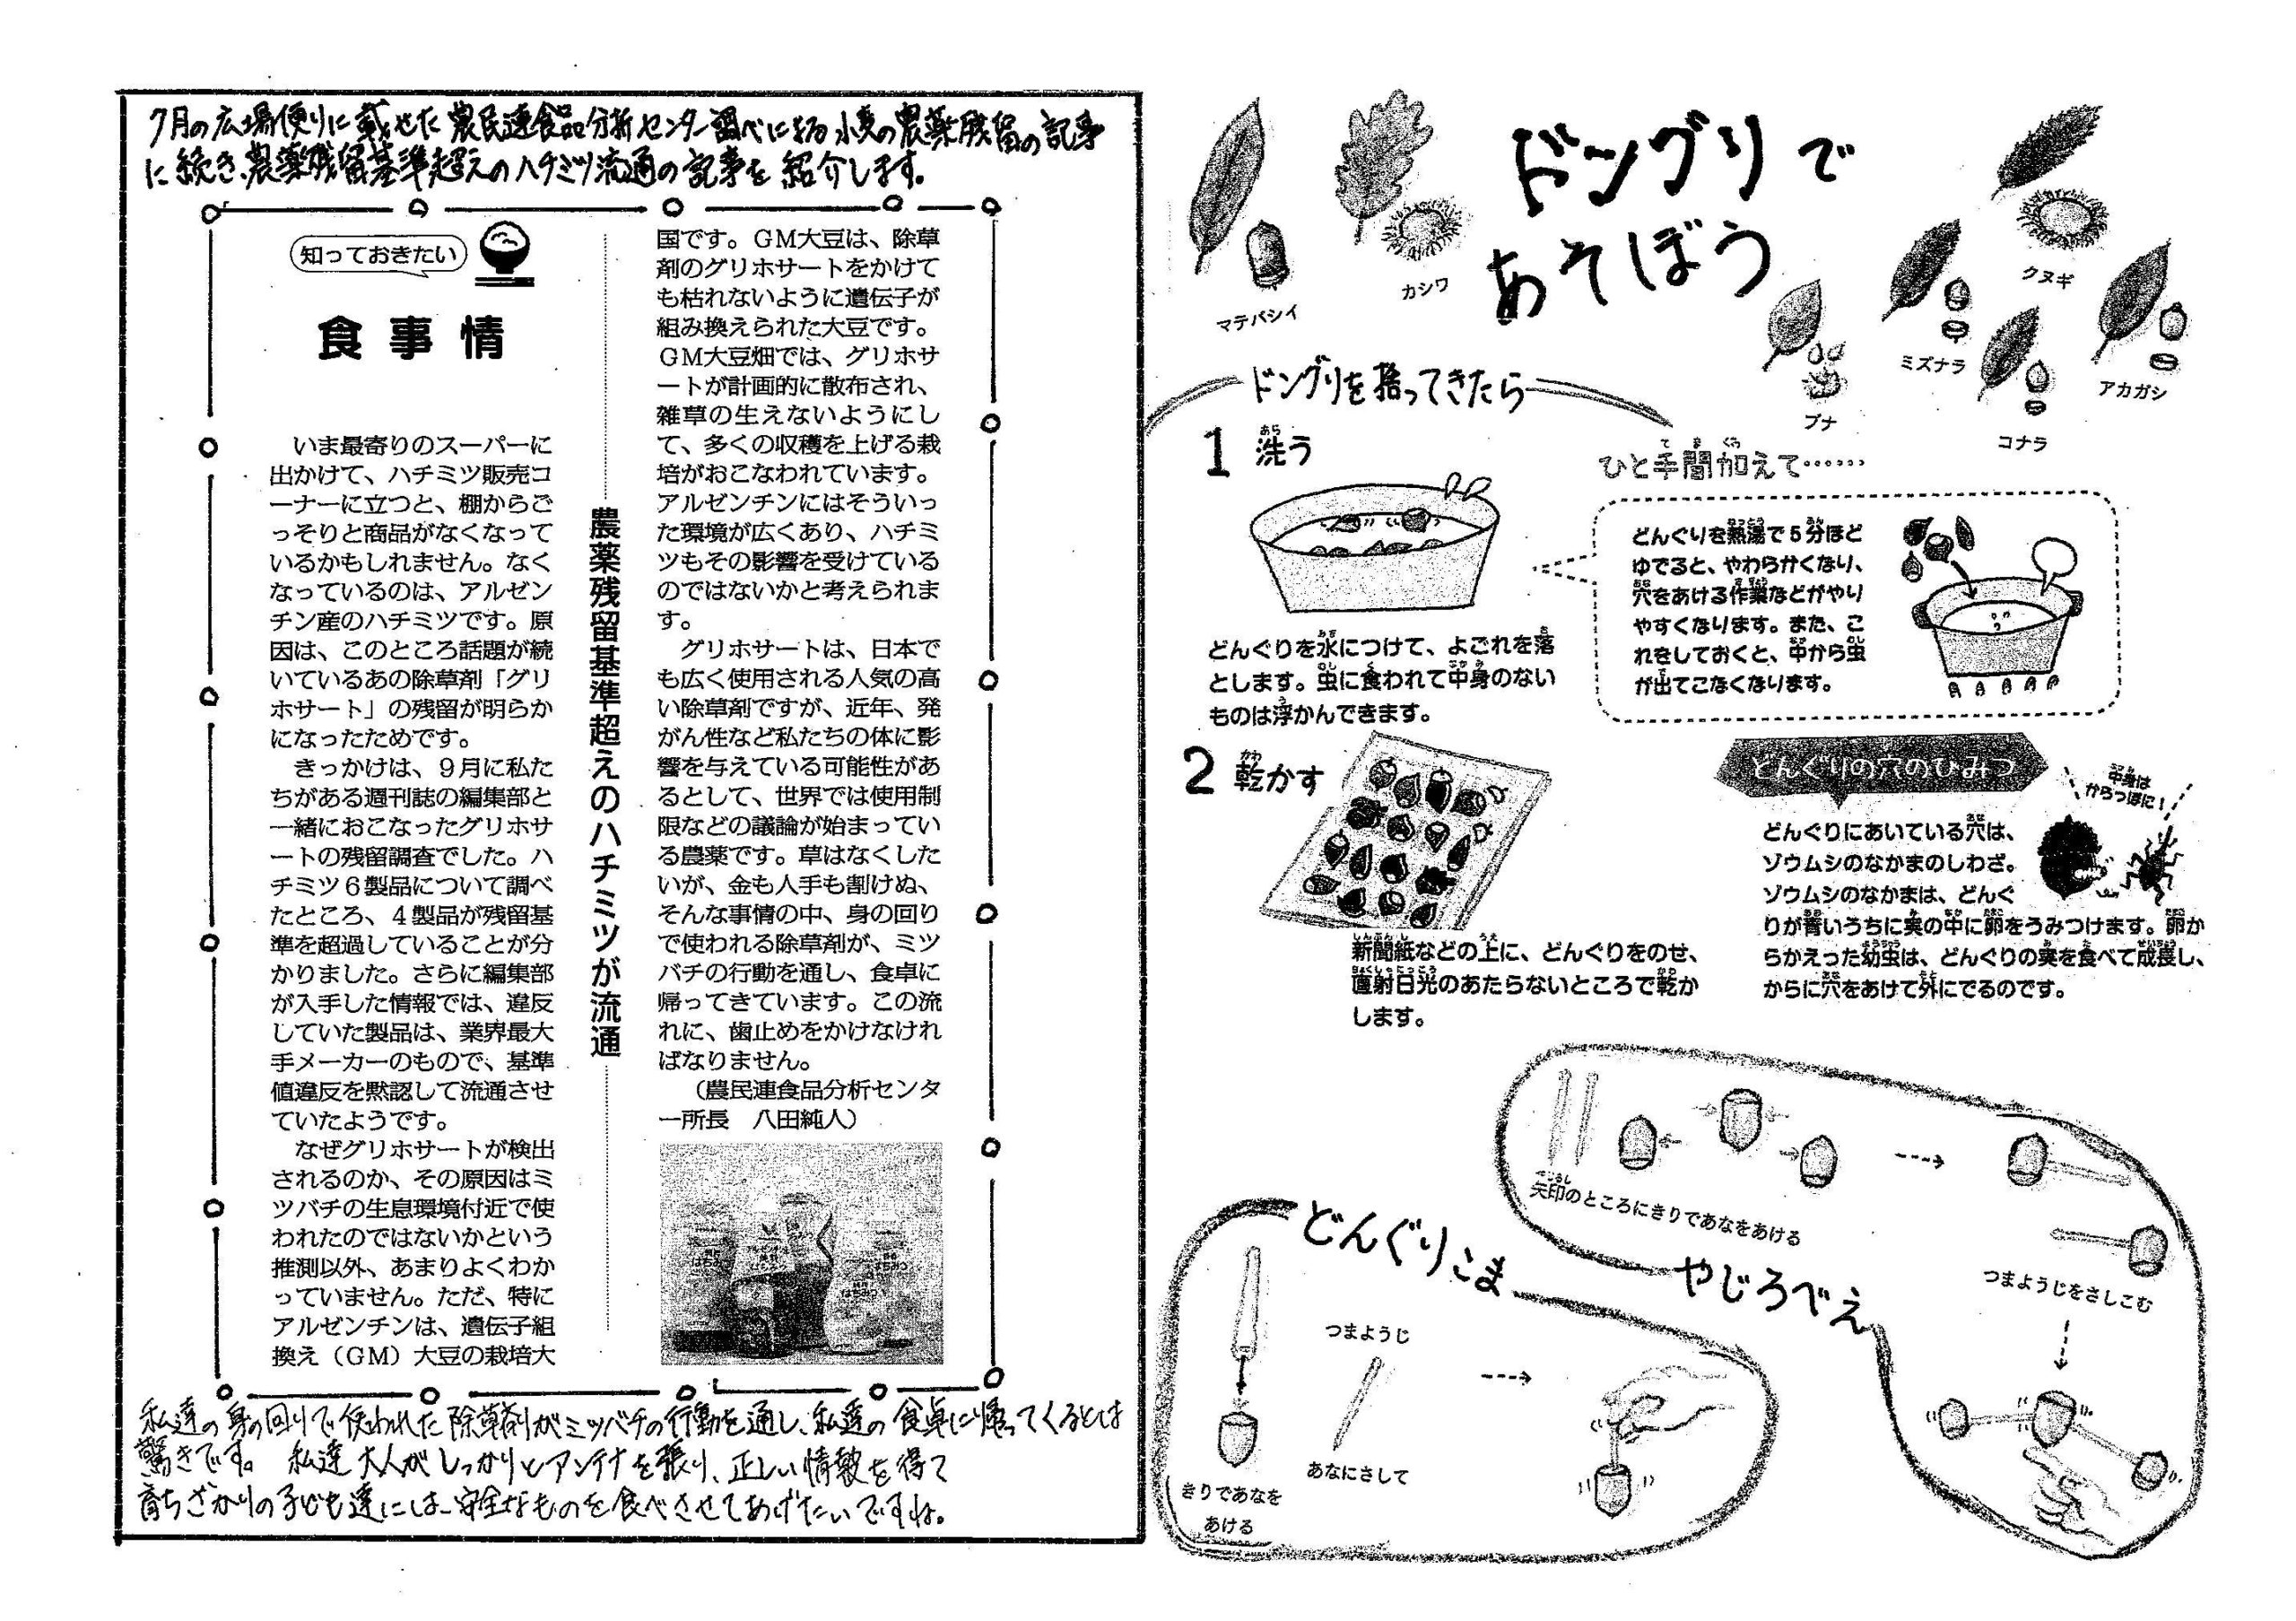 7月の広場便りに載せた農民連食品分析センター調べによる小麦の農薬残留の記事
に続き、農薬残留基準超えのハチミツ流通の記事を紹介します。
知っておきたい
食事情
農薬残留基準超えのハチミツが流通
いま最寄りのスーパーに
出かけて、ハチミツ販売コ
ーナーに立つと、棚からご
っそりと商品がなくなって
いるかもしれません。なく
なっているのは、アルゼン
チン産のハチミツです。原
因は、このところ話題が続
いているあの除草剤「グリ
ホサート」の残留が明らか
になったためです。
きっかけは、9月に私た
ちがある週刊誌の編集部と
一緒におこなったグリホサ
ートの残留調査でした。ハ
チミツ6製品について調べ
たところ、4製品が残留基
準を超過していることが分
かりました。さらに編集部
が入手した情報では、違反
していた製品は、業界最大
手メーカーのもので、基準
値違反を黙認して流通させ
ていたようです。
なぜグリホサートが検出
されるのか、その原因はミ
ツバチの生息環境付近で使
われたのではないかという
推測以外、あまりよくわか
っていません。ただ、特に
アルゼンチンは、遺伝子組
換え（GM）大豆の栽培大
国です。GM大豆は、除草
剤のグリホサートをかけて
も枯れないように遺伝子が
組み換えられた大豆です。
GM大豆畑では、グリホサ
ートが計画的に散布され、
雑草の生えないようにし
て、多くの収穫を上げる栽
培がおこなわれています。
アルゼンチンにはそういっ
た環境が広くあり、ハチミ
ツもその影響を受けている
のではないかと考えられま
す。
グリホサートは、日本で
も広く使用される人気の高
い除草剤ですが、近年、発
がん性など私たちの体に影
響を与えている可能性があ
るとして、世界では使用制
限などの議論が始まってい
る農薬です。草はなくした
いが、金も人手も割けぬ、
そんな事情の中、身の回り
で使われる除草剤が、ミツ
バチの行動を通し、食卓に
帰ってきています。この流
れに、歯止めをかけなけれ
ばなりません。
（農民連食品分析センタ
ー所長　八田純人）
私達の身の回りで使われた除草剤がミツバチの行動を通し、私達の食卓に帰ってくるとは
驚きです。私達大人がしっかりとアンテナを張り、正しい情報を得て
育ちざかりの子ども達には安全なものを食べさせてあげたいですね。
ドングリで
あそぼう
マテバシイ
カシワ
クヌギ
ミズナラ
アカガシ
ブナ
コナラ
ドングリを拾ってきたら
1 洗う
どんぐりを水につけて、よごれを落
とします。虫に食われて中身のない
ものは浮かんできます。
ひと手間加えて……
どんぐりを熱湯で5分ほど
ゆでると、やわらかくなり、
穴をあける作業などがやり
やすくなります。また、こ
れをしておくと、中から虫
が出てこなくなります。
2 乾かす
新聞紙などの上に、どんぐりをのせ、
直射日光のあたらないところで乾か
します。
どんぐりの穴のひみつ
中身は
からっぽに！
どんぐりにあいている穴は、
ゾウムシのなかまのしわざ。
ゾウムシのなかまは、どんぐ
りが青いうちに実の中に卵をうみつけます。卵か
らかえった幼虫は、どんぐりの実を食べて成長し、
からに穴をあけて外にでるのです。
どんぐりこま
きりであなを
あける
つまようじ
あなにさして
やじろべえ
矢印のところにきりであなをあける
つまようじをさしこむ